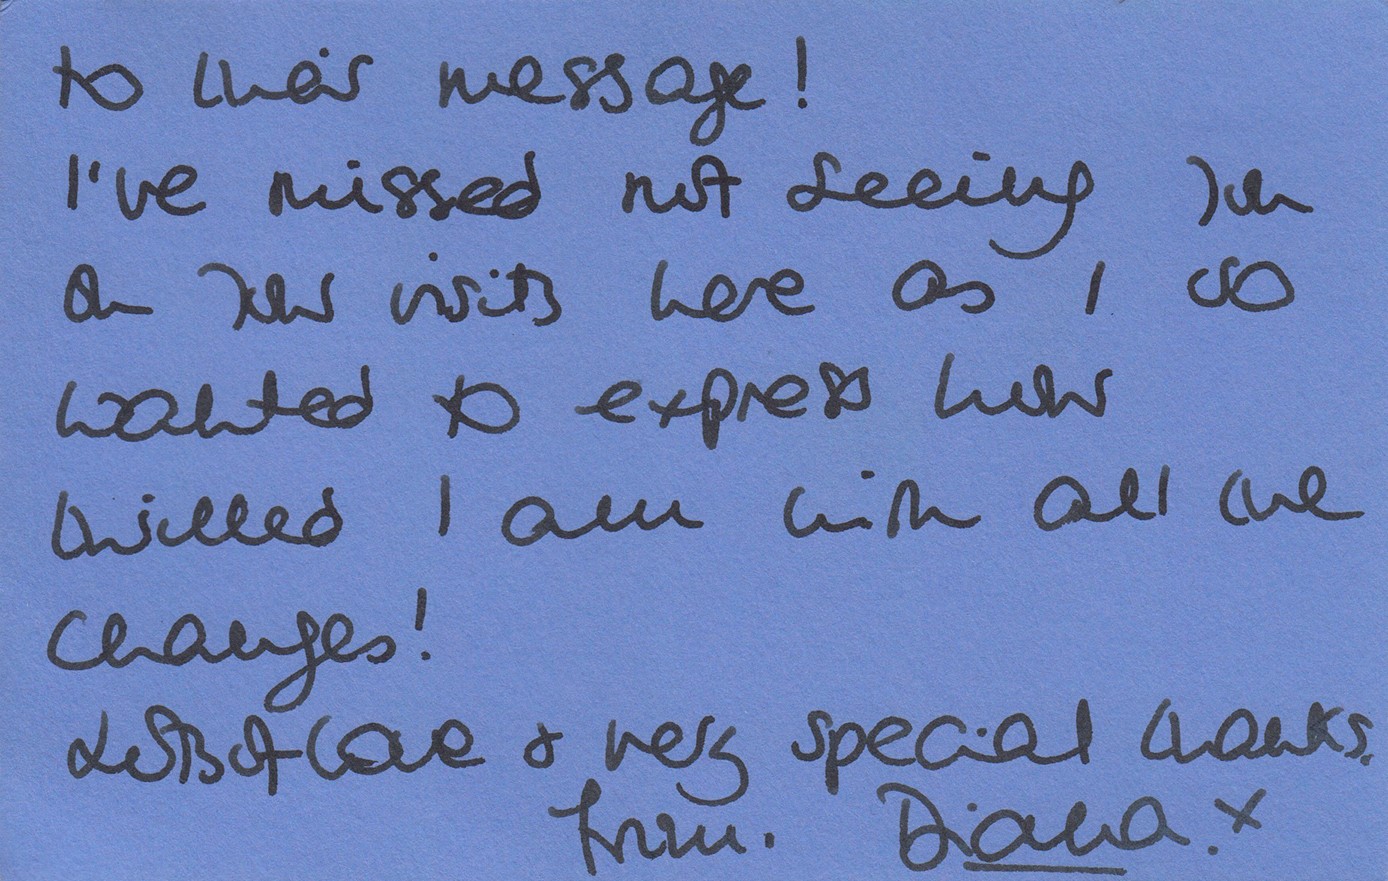 to their message!
I've missed not seeing you
on your visits here as I so
wanted to express how
thrilled I am with all the
changes!
Lots of love & very special thanks.
from. Diana. x